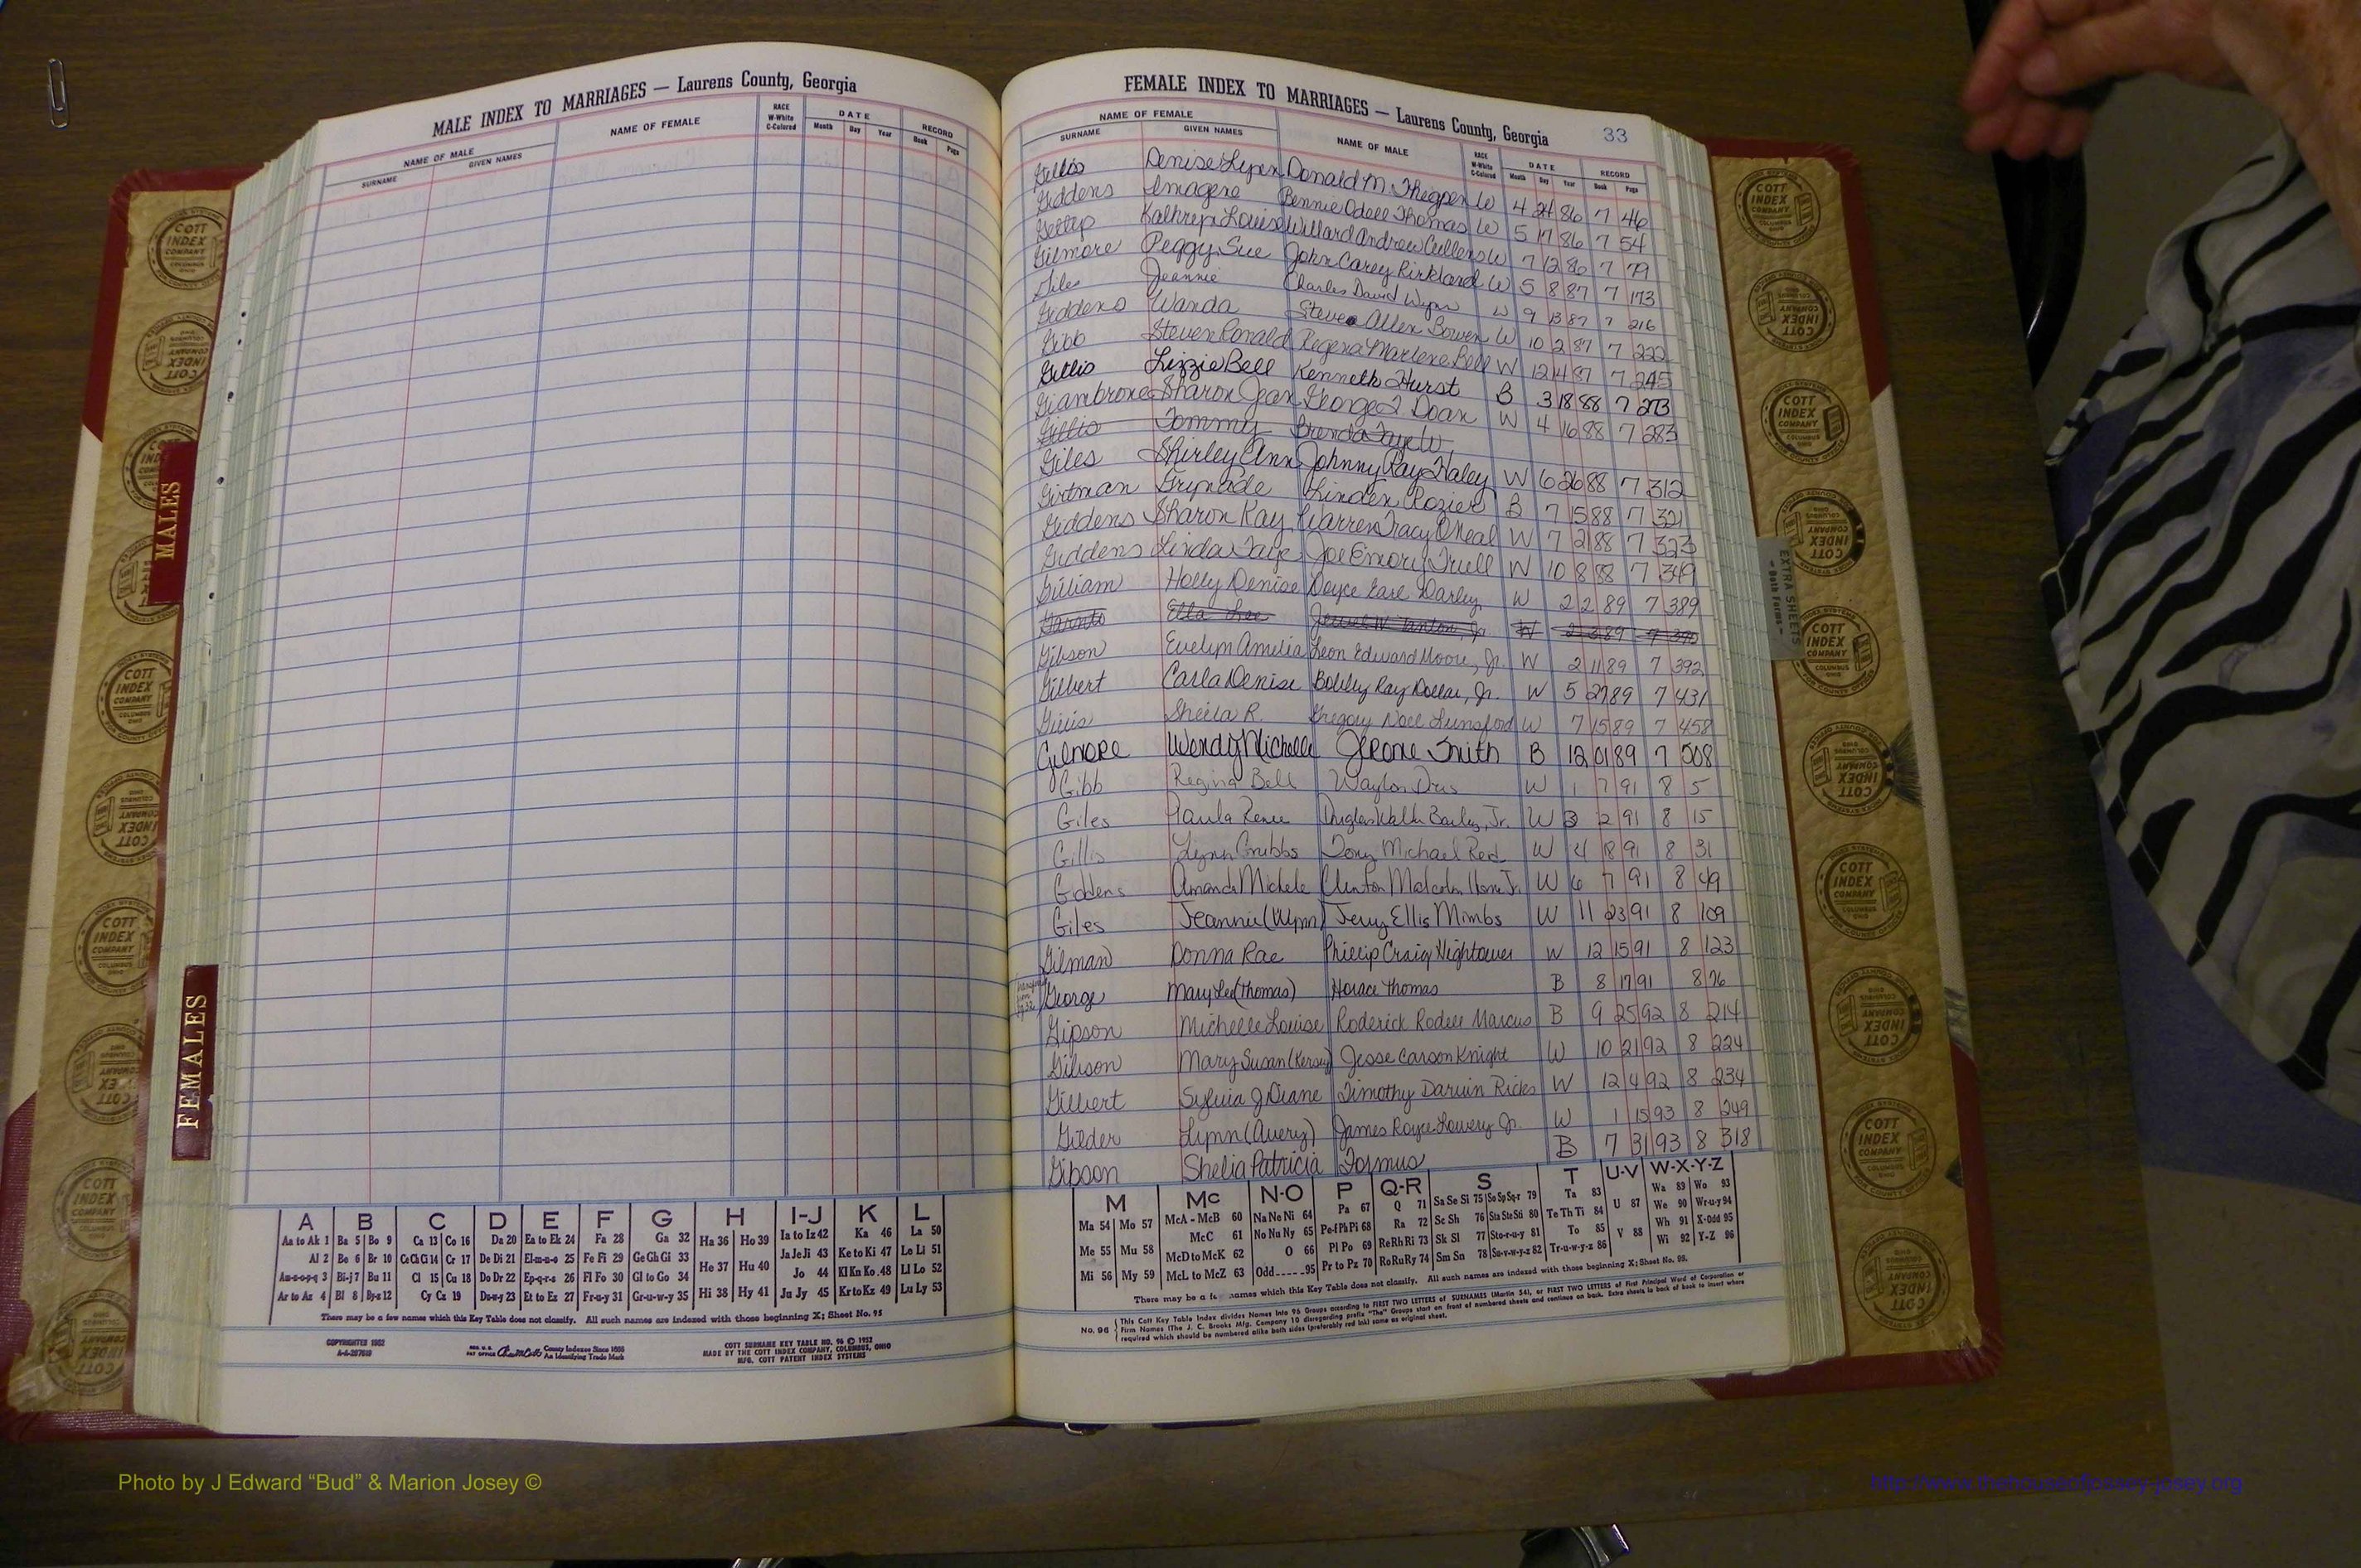 MALE INDEX TO MARRIAGES — Laurens County, Georgia
NAME OF MALE
SURNAME GIVEN NAMES
NAME OF FEMALE
RACE
W-White
C-Colored
DATE
Month Day Year
RECORD
Book Page
MALES
FEMALES
A B C D E F G H I-J K L
Aa to Ak 1 Ba 5 Bo 9 Ca 13 Co 16 Da 20 Ea to Ek 24 Fa 28 Ga 32 Ha 36 Ho 39 Ia to Iz 42 Ka 46 La 50
Al 2 Be 6 Br 10 CeChCi 14 Cr 17 De Di 21 El-m-n-o 25 Fe Fi 29 Ge Gh Gi 33 He 37 Hu 40 Ja Je Ji 43 Ke to Ki 47 Le Li 51
Am-n-o-p-q 3 Bi-j 7 Bu 11 Cl 15 Cu 18 Do Dr 22 Ep-q-r-s 26 Fl Fo 30 Gl to Go 34 Jo 44 Kl Kn Ko 48 Ll Lo 52
Ar to Az 4 Bl 8 By-z 12 Cy Cz 19 Du-w-y 23 Et to Ez 27 Fr-u-y 31 Gr-u-w-y 35 Hi 38 Hy 41 Ju Jy 45 Kr to Kz 49 Lu Ly 53
There may be a few names which this Key Table does not classify. All such names are indexed with those beginning X; Sheet No. 95
COPYRIGHTED 1952
County Indexes Since 1888
An Identifying Trade Mark
COTT SURNAME KEY TABLE NO. 96 © 1952
MADE BY THE COTT INDEX COMPANY, COLUMBUS, OHIO
MFG. COTT PATENT INDEX SYSTEMS
FEMALE INDEX TO MARRIAGES — Laurens County, Georgia 33
NAME OF FEMALE
SURNAME GIVEN NAMES
NAME OF MALE
RACE
W-White
C-Colored
DATE
Month Day Year
RECORD
Book Page
Gillis Denise Lynn Donald M. Thigpen W 4 24 86 7 46
Giddens Imagene Bennie Odell Thomas W 5 17 86 7 54
Kathryn Louise Willard Andrew Cullens W 7 12 86 7 79
Gilmore Peggy Sue John Carey Kirkland W 5 8 87 7 173
Giles Jeannie Charles David Wynn W 9 13 87 7 216
Giddens Wanda Steve Allen Bowen W 10 2 87 7 222
Gibb Steven Ronald Regena Marlene Bell W 12 4 87 7 245
Gillis Lizzie Bell Kenneth Hurst B 3 18 88 7 273
Giambrone Sharon Jean George L. Doan W 4 16 88 7 283
Gillis Tommy Brenda Faye
Giles Shirley Ann Johnny Ray Haley W 6 26 88 7 312
Girtman Linden Rozier B 7 15 88 7 321
Giddens Sharon Kay Warren Tracy O'Neal W 7 2 88 7 323
Giddens Linda Faye Joe Emory Trull W 10 8 88 7 349
Gilliam Holly Denise Doyce Earl Darley W 2 2 89 7 389
Ella Lee W
Gibson Evelyn Amelia Leon Edward Moore, Jr. W 2 11 89 7 392
Gilbert Carla Denise Bobby Ray Dollar, Jr. W 5 27 89 7 431
Gillis Sheila R. Gregory Noel Lunsford W 7 15 89 7 458
Gilmore Wendy Michelle Jerome Smith B 12 01 89 7 508
Gibb Regina Bell Waylon W 1 7 91 8 5
Giles Paula Renee Jr. W 3 2 91 8 15
Gillis Lynn Grubbs Tony Michael Reid W 4 18 91 8 31
Giddens Amanda Michele Clinton Malcolm Jr. W 6 7 91 8 49
Giles Jeannie (Wynn) Jerry Ellis Mimbs W 11 23 91 8 109
Gilman Donna Rae Phillip Craig Hightower W 12 15 91 8 123
George Mary Lee (Thomas) Horace Thomas B 8 17 91 8 76
Gipson Michelle Louise Roderick Rodell Marcus B 9 25 92 8 214
Gibson Mary Susan (Kersey) Jesse Carson Knight W 10 21 92 8 224
Gilbert Sylvia J Diane Timothy Darwin Ricks W 12 4 92 8 234
Gilder Lynn (Avery) James Royce Lowery Jr. W 1 15 93 8 249
Gibson Shelia Patricia B 7 31 93 8 318
M Mc N-O P Q-R S T U-V W-X-Y-Z
Ma 54 Mo 57 McA - McB 60 Na Ne Ni 64 Pa 67 Q 71 Sa Se Si 75 So Sp Sq-r 79 Ta 83 U 87 Wa 89 Wo 93
Me 55 Mu 58 McC 61 No Nu Ny 65 Pe-f Ph Pi 68 Ra 72 Sc Sh 76 Sta Ste Sti 80 Te Th Ti 84 We 90 Wr-u-y 94
McD to McK 62 O 66 Pl Po 69 Re Rh Ri 73 Sk Sl 77 Sto-r-u-y 81 To 85 V 88 Wh 91 X-Odd 95
Mi 56 My 59 McL to McZ 63 Odd.....95 Pr to Pz 70 Ro Ru Ry 74 Sm Sn 78 Su-v-w-y-z 82 Tr-u-w-y-z 86 Wi 92 Y-Z 96
There may be a few names which this Key Table does not classify. All such names are indexed with those beginning X; Sheet No. 95.
No. 96 This Cott Key Table Index divides Names into 96 Groups according to FIRST TWO LETTERS of SURNAMES (Martin 54), or FIRST TWO LETTERS of First Principal Word of Corporation or
Firm Names (The J. C. Brooks Mfg. Company 10 disregarding prefix "The" Groups start on front of numbered sheets and continue on back. Extra sheets in back of book to insert where
required which should be numbered alike both sides (preferably red ink) same as original sheet.
EXTRA SHEETS
COTT
INDEX
COMPANY
COLUMBUS
OHIO
Photo by J Edward “Bud” & Marion Josey ©
http://www.thehouseofjossey-josey.org